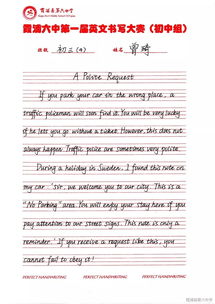 霞浦第六中学
霞浦六中第一届英文书写大赛（初中组）
班级 初三(4) 姓名 曾琦
A Polite Request
If you park your car in the wrong place, a
traffic policeman will soon find it. You will be very lucky
if he lets you go without a ticket. However, this does not
always happen. Traffic police are sometimes very polite.
During a holiday in Sweden, I found this note on
my car: "sir, we welcome you to our city. This is a
"No Parking" area. You will enjoy your stay here if you
pay attention to our street signs. This note is only a
reminder.' If you receive a request like this, you
cannot fail to obey it!
PERFECT HANDWRITING PERFECT HANDWRITING